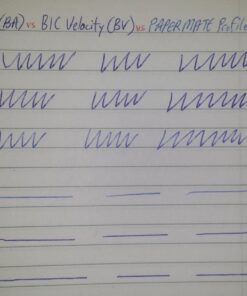 (BA) vs BIC Velocity (BV) vs PAPERMATE Profile